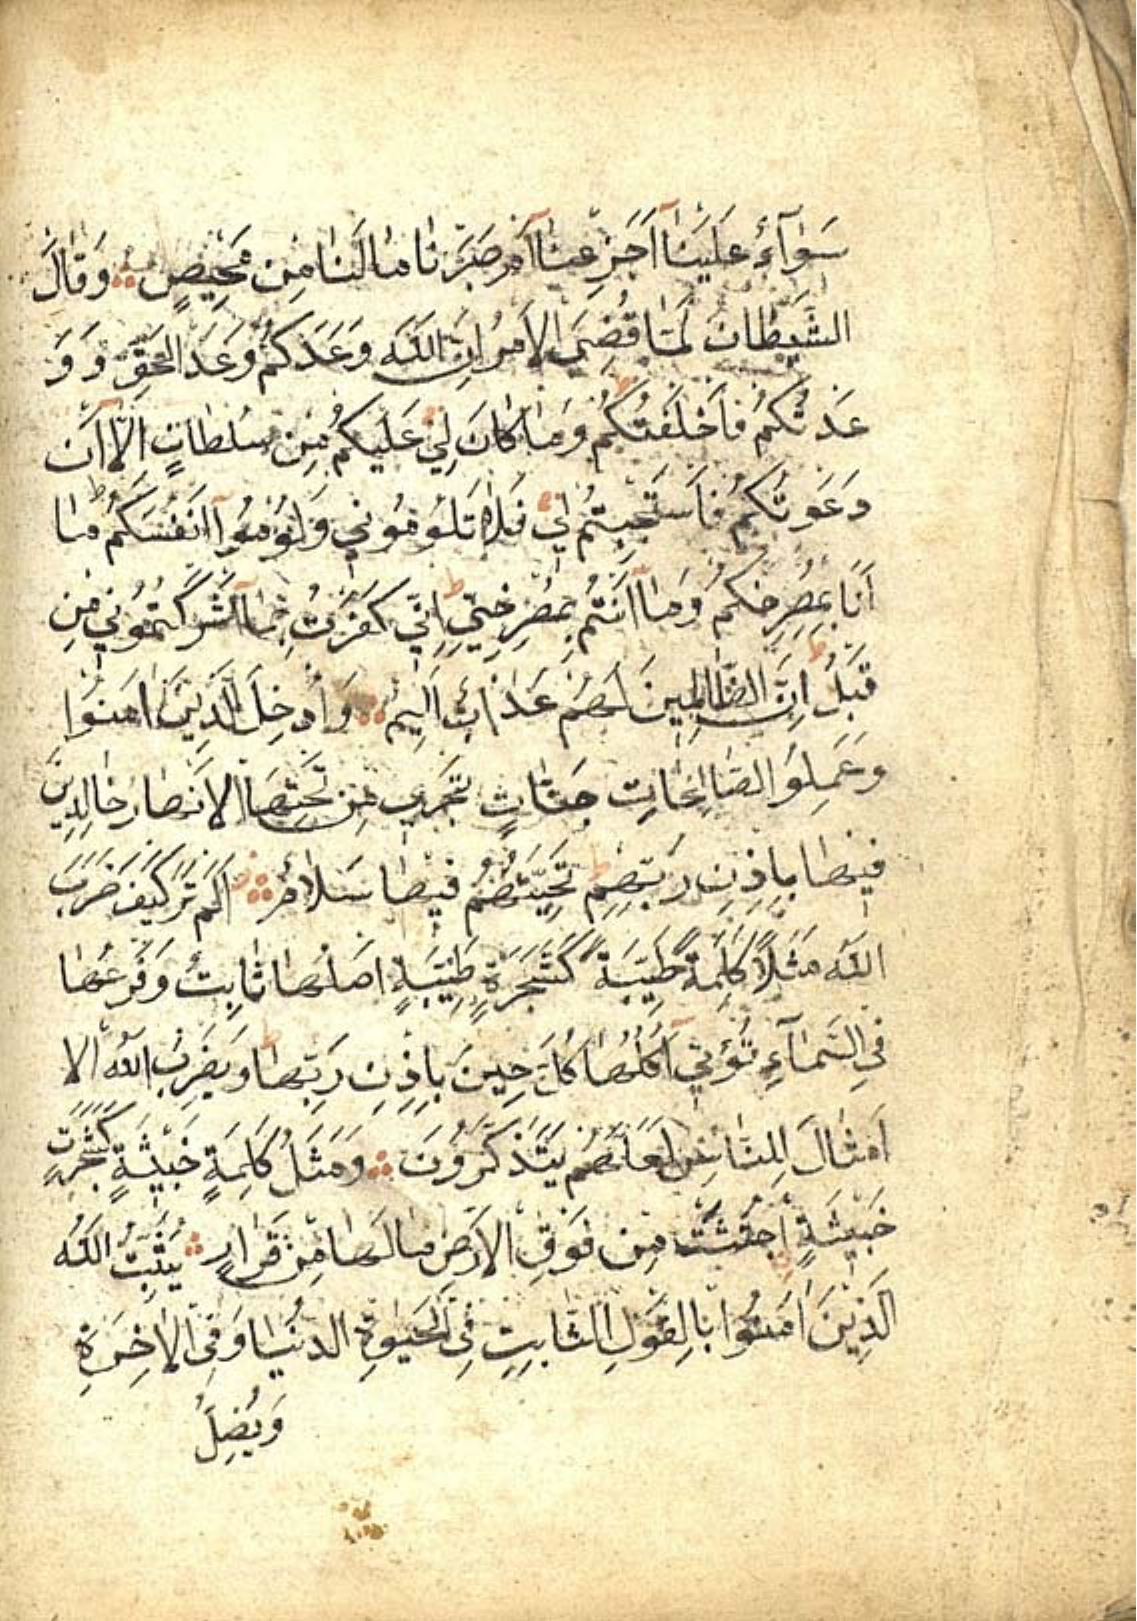 سَوَآءٌ عَلَيْنَآ اَجَزِعْنَآ اَمْ صَبَرْنَا مَا لَنَا مِنْ مَحِيصٍ وَقَالَ
الشَّيْطَانُ لَمَّا قُضِيَ الْاَمْرُ اِنَّ اللّٰهَ وَعَدَكُمْ وَعْدَ الْحَقِّ وَوَ
عَدْتُكُمْ فَاَخْلَفْتُكُمْ ط وَمَا كَانَ لِيَ عَلَيْكُمْ مِنْ سُلْطَانٍ اِلَّآ اَنْ
دَعَوْتُكُمْ فَاسْتَجَبْتُمْ لِي فَلَا تَلُومُونِي وَلُومُوٓا اَنْفُسَكُمْ ط مَا
اَنَا بِمُصْرِخِكُمْ وَمَآ اَنْتُمْ بِمُصْرِخِيَّ ط اِنِّي كَفَرْتُ بِمَآ اَشْرَكْتُمُونِي مِنْ
قَبْلُ ط اِنَّ الظَّالِمِينَ لَهُمْ عَذَابٌ اَلِيمٌ وَاُدْخِلَ الَّذِينَ اٰمَنُوا
وَعَمِلُوا الصَّالِحَاتِ جَنَّاتٍ تَجْرِي مِنْ تَحْتِهَا الْاَنْهَارُ خَالِدِينَ
فِيهَا بِاِذْنِ رَبِّهِمْ ط تَحِيَّتُهُمْ فِيهَا سَلَامٌ اَلَمْ تَرَ كَيْفَ ضَرَبَ
اللّٰهُ مَثَلًا كَلِمَةً طَيِّبَةً كَشَجَرَةٍ طَيِّبَةٍ اَصْلُهَا ثَابِتٌ وَفَرْعُهَا
فِي السَّمَآءِ تُؤْتِيٓ اُكُلَهَا كُلَّ حِينٍ بِاِذْنِ رَبِّهَا ط وَيَضْرِبُ اللّٰهُ الا
اَمْثَالَ لِلنَّاسِ لَعَلَّهُمْ يَتَذَكَّرُونَ وَمَثَلُ كَلِمَةٍ خَبِيثَةٍ كَشَجَرَةٍ
خَبِيثَةٍ اجْتُثَّتْ مِنْ فَوْقِ الْاَرْضِ مَا لَهَا مِنْ قَرَارٍ يُثَبِّتُ اللّٰهُ
الَّذِينَ اٰمَنُوا بِالْقَوْلِ الثَّابِتِ فِي الْحَيٰوةِ الدُّنْيَا وَفِي الْاٰخِرَةِ
وَيُضِلُّ